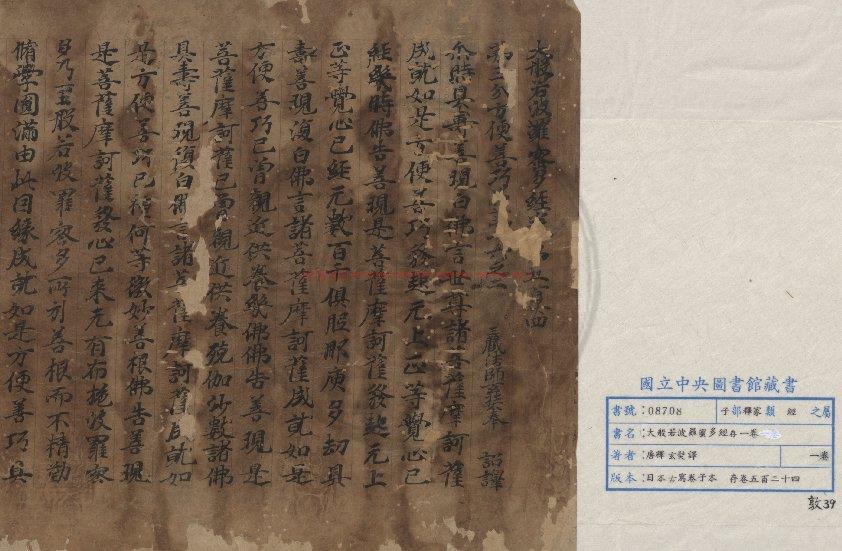 大般若波羅蜜多經
第三分方便善巧
藏法師玄奘奉 詔譯
尒時具壽善現白佛言世尊諸菩薩摩訶薩
成就如是方便善巧發趣无上正等覺心已
經幾時佛告善現是菩薩摩訶薩發趣无上
正等覺心已經无數百千俱胝那庾多劫具
壽善現復白佛言諸菩薩摩訶薩成就如是
方便善巧已曾親近供養幾佛佛告善現是
菩薩摩訶薩已曾親近供養殑伽沙數諸佛
具壽善現復白佛言諸菩薩摩訶薩成就如
是方便善巧已種何等微妙善根佛告善現
是菩薩摩訶薩發心已來无有布施波羅蜜
多乃至般若波羅蜜多所引善根而不精勤
脩學圓滿由此因緣成就如是方便善巧具
國立中央圖書館藏書
書號：08708 子部釋家類 經 之屬
書名：大般若波羅蜜多經存一卷
著者：唐釋玄奘譯 一卷
版本：日本古寫卷子本 存卷五百二十四
敦39